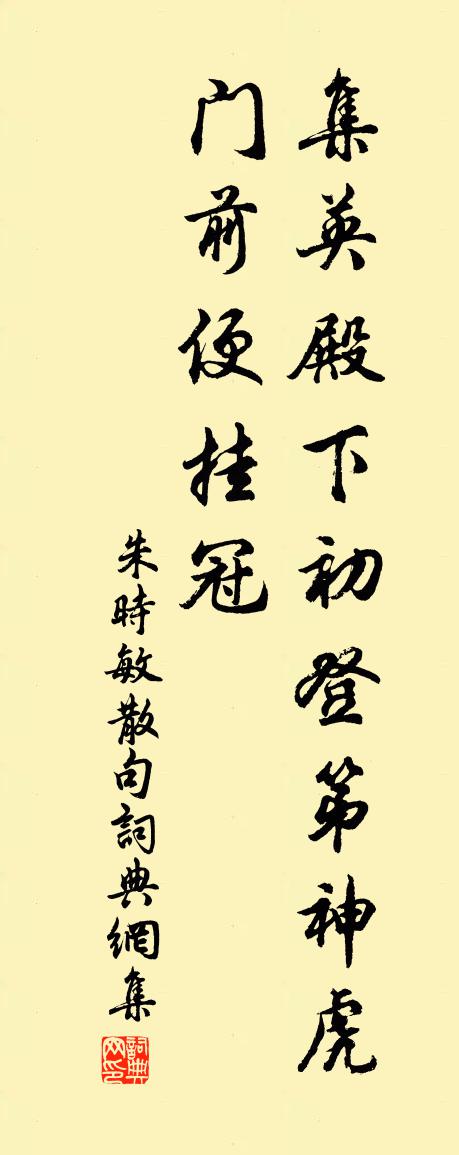 集英殿下初登第神虎
门前便挂冠
朱時敏散句詞典網集
詞典网印